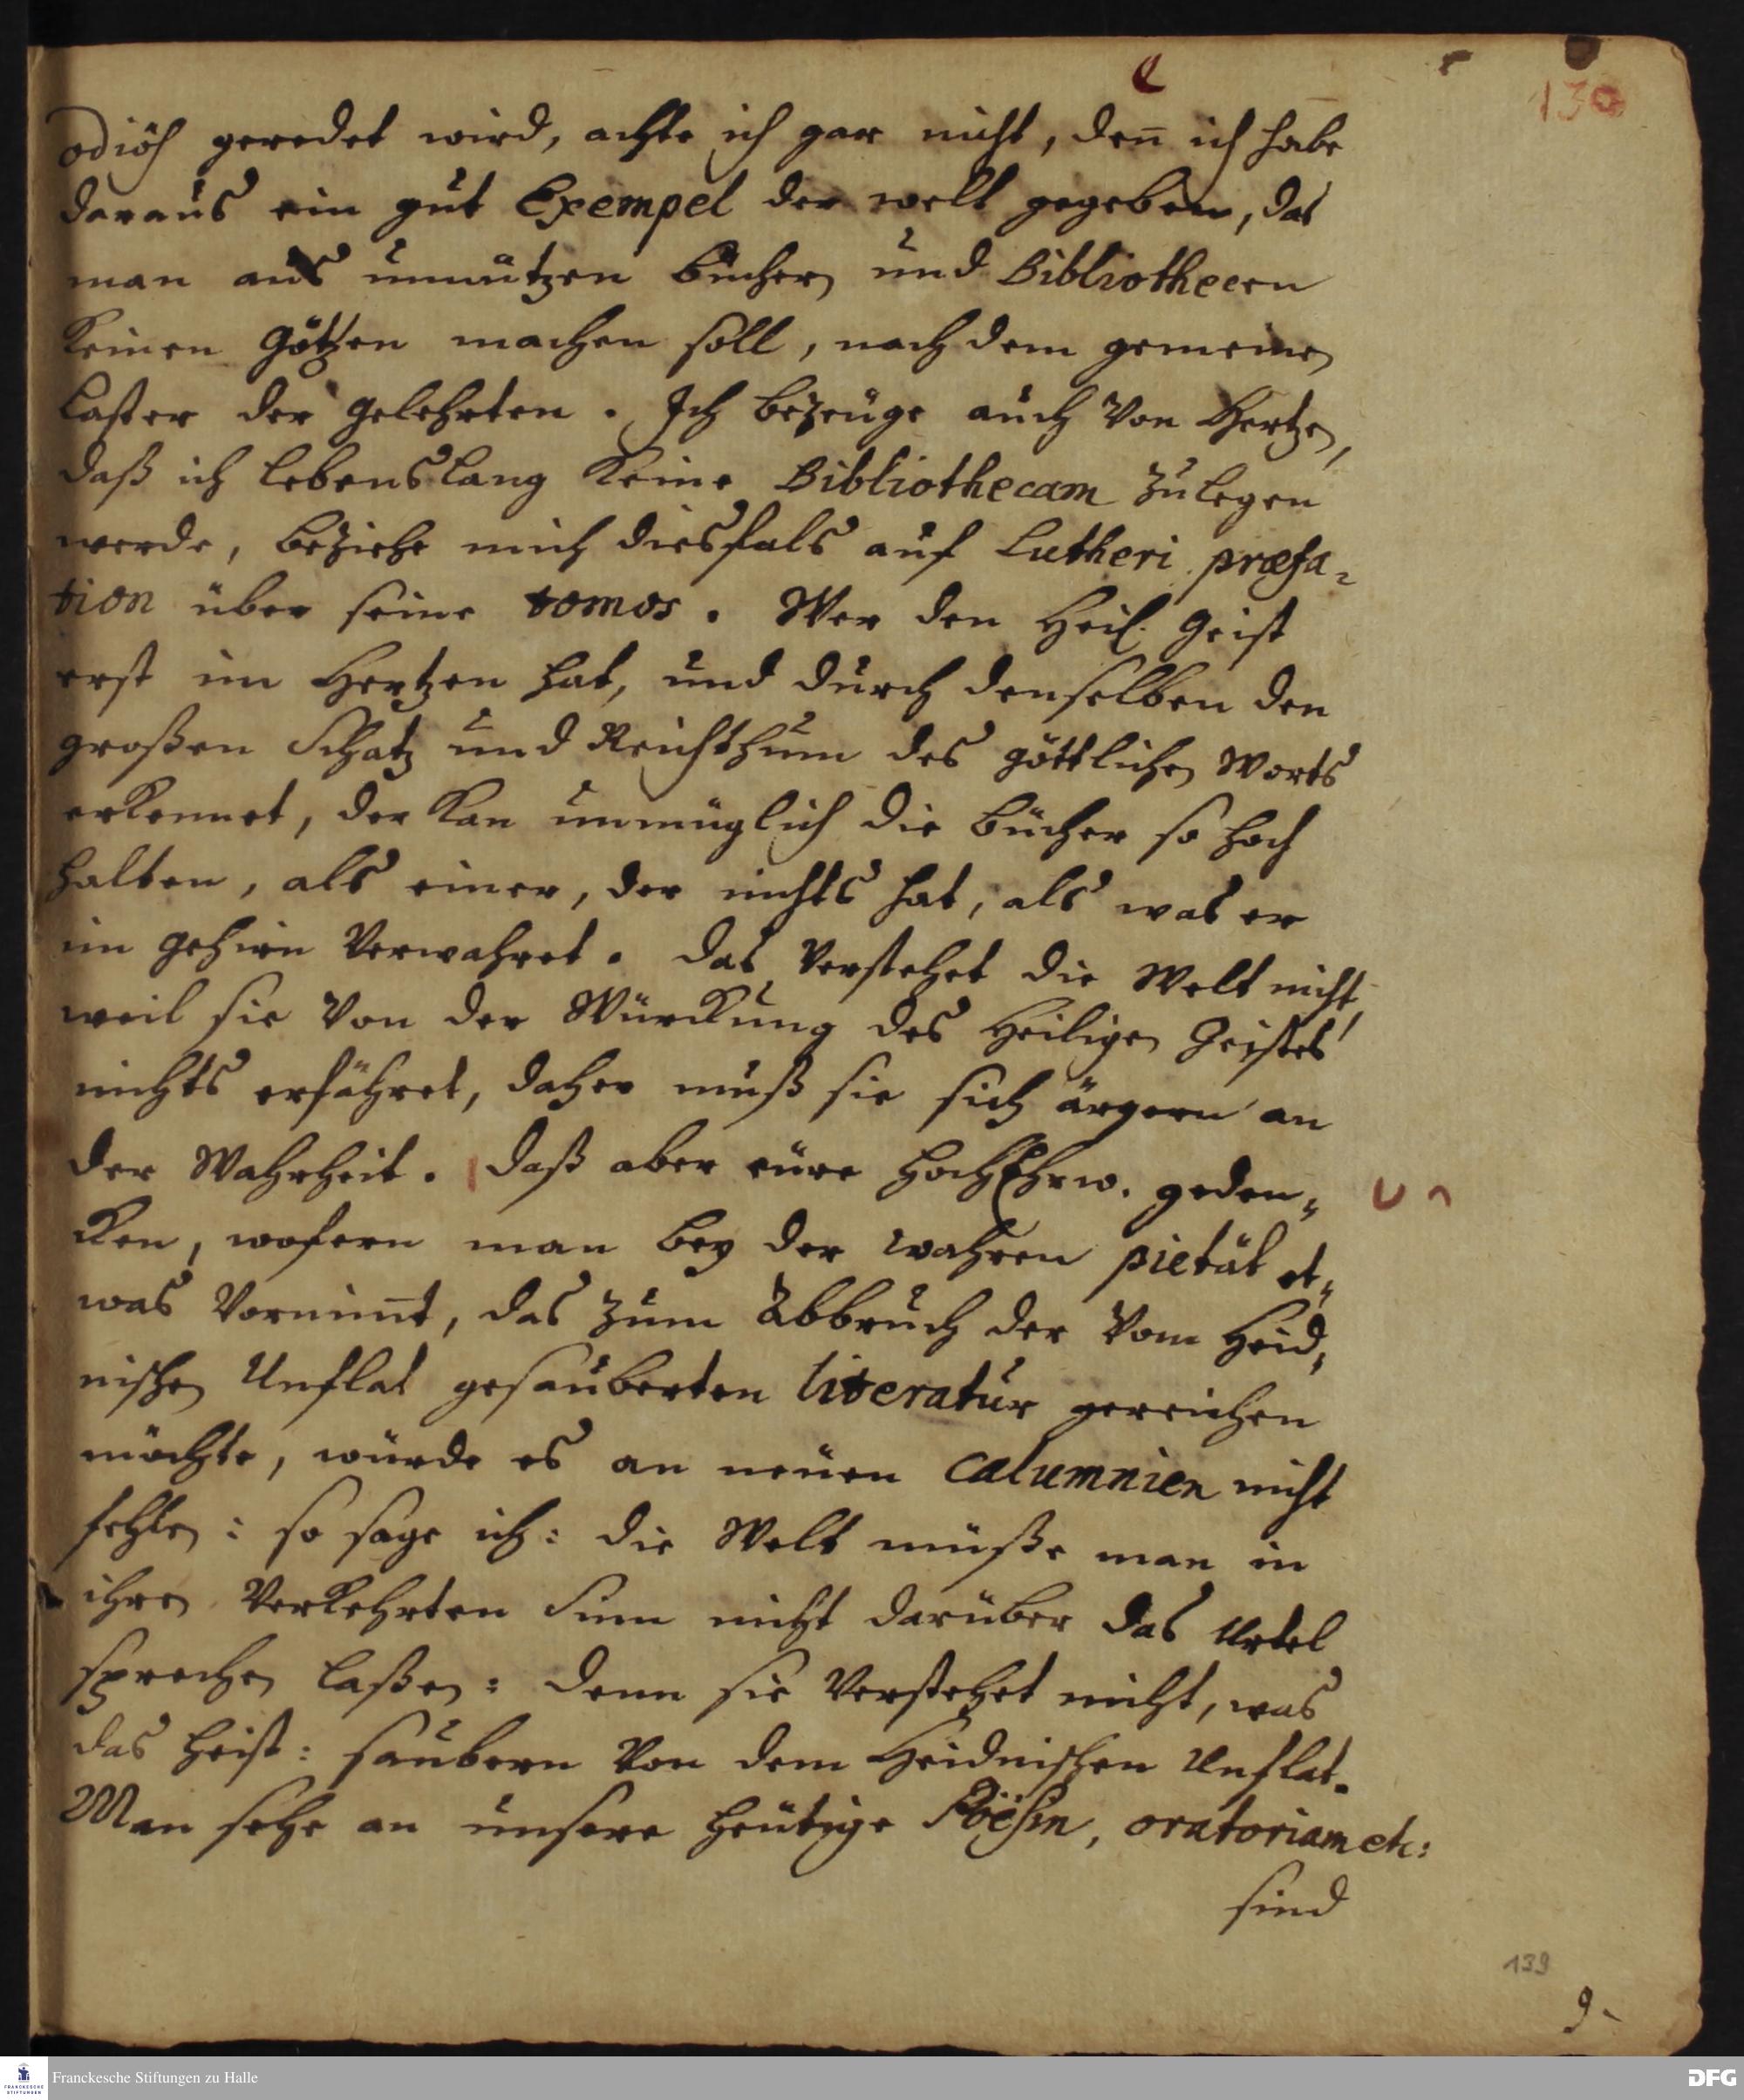 130
odiös geredet wird, achte ich gar nicht, den̄ ich habe
daraus ein gut Exempel der welt gegeben, das
man aus unnützen büchern und Bibliothecen
keinen Götzen machen soll, nach dem gemeinen
laster der gelehrten. Ich bezeuge auch von Hertzen,
daß ich lebenslang keine Bibliothecam zulegen
werde, beziehe mich diesfals auf Lutheri præfa-
tion über seine tomos. Wer den Heil. Geist
erst im Hertzen hat, und durch denselben den
großen Schatz und Reichthum des göttlichen Worts
erkennet, der kan unmüglich die bücher so hoch
halten, als einer, der nichts hat, als was er
im gehirn verwahret. das verstehet die Welt nicht,
weil sie von der Würckung des Heiligen Geistes
nichts erfähret, daher muß sie sich ärgern an
der Wahrheit. daß aber eure HochEhrw. geden-
cken, wofern man bey der wahren pietät et-
was vornim̄t, das zum Abbruch der vom Heid-
nischen Unflat gesauberten literatur gereichen
möchte, würde es an neuen calumnien nicht
fehlen: so sage ich: die Welt müße man in
ihren verkehrten Sinn nicht darüber das Urtel
sprechen laßen: denn sie verstehet nicht, was
das heist: saubern von dem Heidnischen Unflat.
Man sehe an unsere heutige Poësin, oratoriam etc:
sind
139
9.
Franckesche Stiftungen zu Halle
FRANCKESCHE STIFTUNGEN
DFG